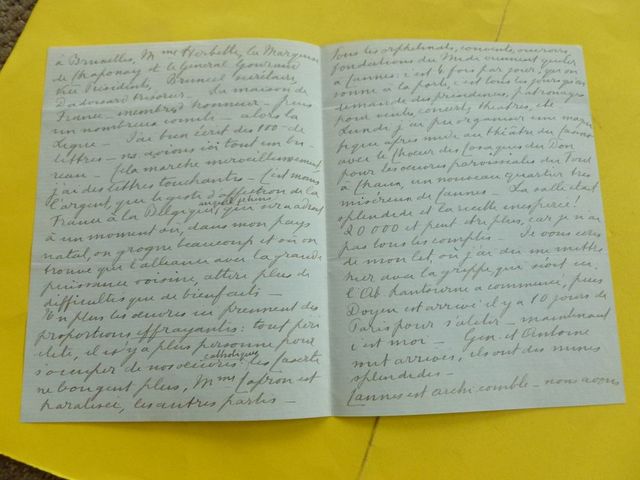 à Bruxelles, Mme Herbette, la Marquise
de Chaponay et le Général Gouraud
vice Présidents, Brincel secrétaire,
Dadossard trésorier. La maison de
France - membres d'honneur - puis
un nombreux comité - alors la
Ligne - J'ai bien écrit des 100 de
lettres - nous avions ici tout un bu-
reau - Cela marche merveilleusement
j'ai des lettres touchantes - C'est moins
l'argent, que le geste d'affection de la
France à la Belgique, auquel je tiens qui viendra
à un moment où, dans mon pays
natal, on grogne beaucoup et où on
trouve que l'alliance avec la grande
puissance voisine, attire plus de
difficultés que de bienfaits -
En plus les œuvres ici prennent des
proportions effrayantes: tout
il n'y a plus personne pour
s'occuper de nos œuvres catholiques: les
ne bougent plus, Mme Capron est
paralisée, les autres partis -
Tous les orphelinats, couvents, ouvroirs,
fondations du Midi viennent quêter
à Cannes: c'est 4 fois par jour, qu'on
sonne à la porte, c'est tous les jours qu'on
demande des présidences, patronages
pour ventes, concerts, théâtres, etc
Lundi j'ai pu organiser une magni-
fique après midi au théâtre du Casino
avec le Chœur des Cosaques du Don
pour les œuvres paroissiales du
à Cannes, un nouveau quartier très
miséreux de Cannes - La salle était
splendide et la recette inespérée!
20 000 et peut être plus, car je n'ai
pas tous les comptes. Je vous écris
de mon lit, où j'ai dû me mettre
hier avec la grippe qui sévit ici.
L'Ab. Lantourne a commencé, puis
Doyen est arrivé il y a 10 jours de
Paris pour s'aliter - maintenant
c'est moi - Gen. et Antoine
sont arrivés, ils ont des mines
splendides -
Cannes est archi comble - nous avons